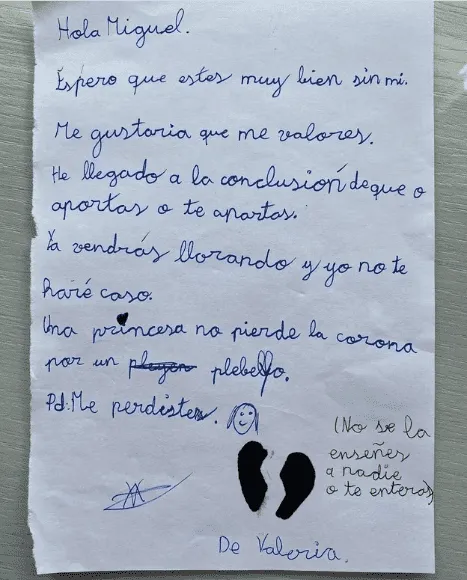 Hola Miguel.
Espero que estes muy bien sin mi.
Me gustaria que me valores.
He llegado a la conclusión deque o
aportas o te apartas.
Ya vendrás llorando y yo no te
haré caso.
Una princesa no pierde la corona
por un plebello.
Pd: Me perdistes.
(No se la
enseñes
a nadie
o te enteras)
De Valeria.